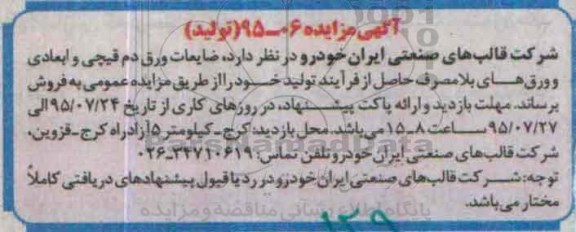 آگهی مزایده ۰۶-۹۵ (تولید)
شرکت قالب‌های صنعتی ایران خودرو در نظر دارد، ضایعات ورق دم قیچی و ابعادی
و ورق‌های بلامصرف حاصل از فرآیند تولید خود را از طریق مزایده عمومی به فروش
برساند. مهلت بازدید و ارائه پاکت پیشنهاد، در روزهای کاری از تاریخ ۹۵/۰۷/۲۴ الی
۹۵/۰۷/۲۷ ساعت ۸-۱۵ می‌باشد. محل بازدید: کرج-کیلومتر ۵ آزادراه کرج-قزوین،
شرکت قالب‌های صنعتی ایران خودرو تلفن تماس: ۳۴۷۱۰۶۱۹-۰۲۶
توجه: شرکت قالب‌های صنعتی ایران خودرو در رد یا قبول پیشنهادهای دریافتی کاملاً
مختار می‌باشد.
پایگاه اطلاع رسانی مناقصه و مزایده
۱۲۹